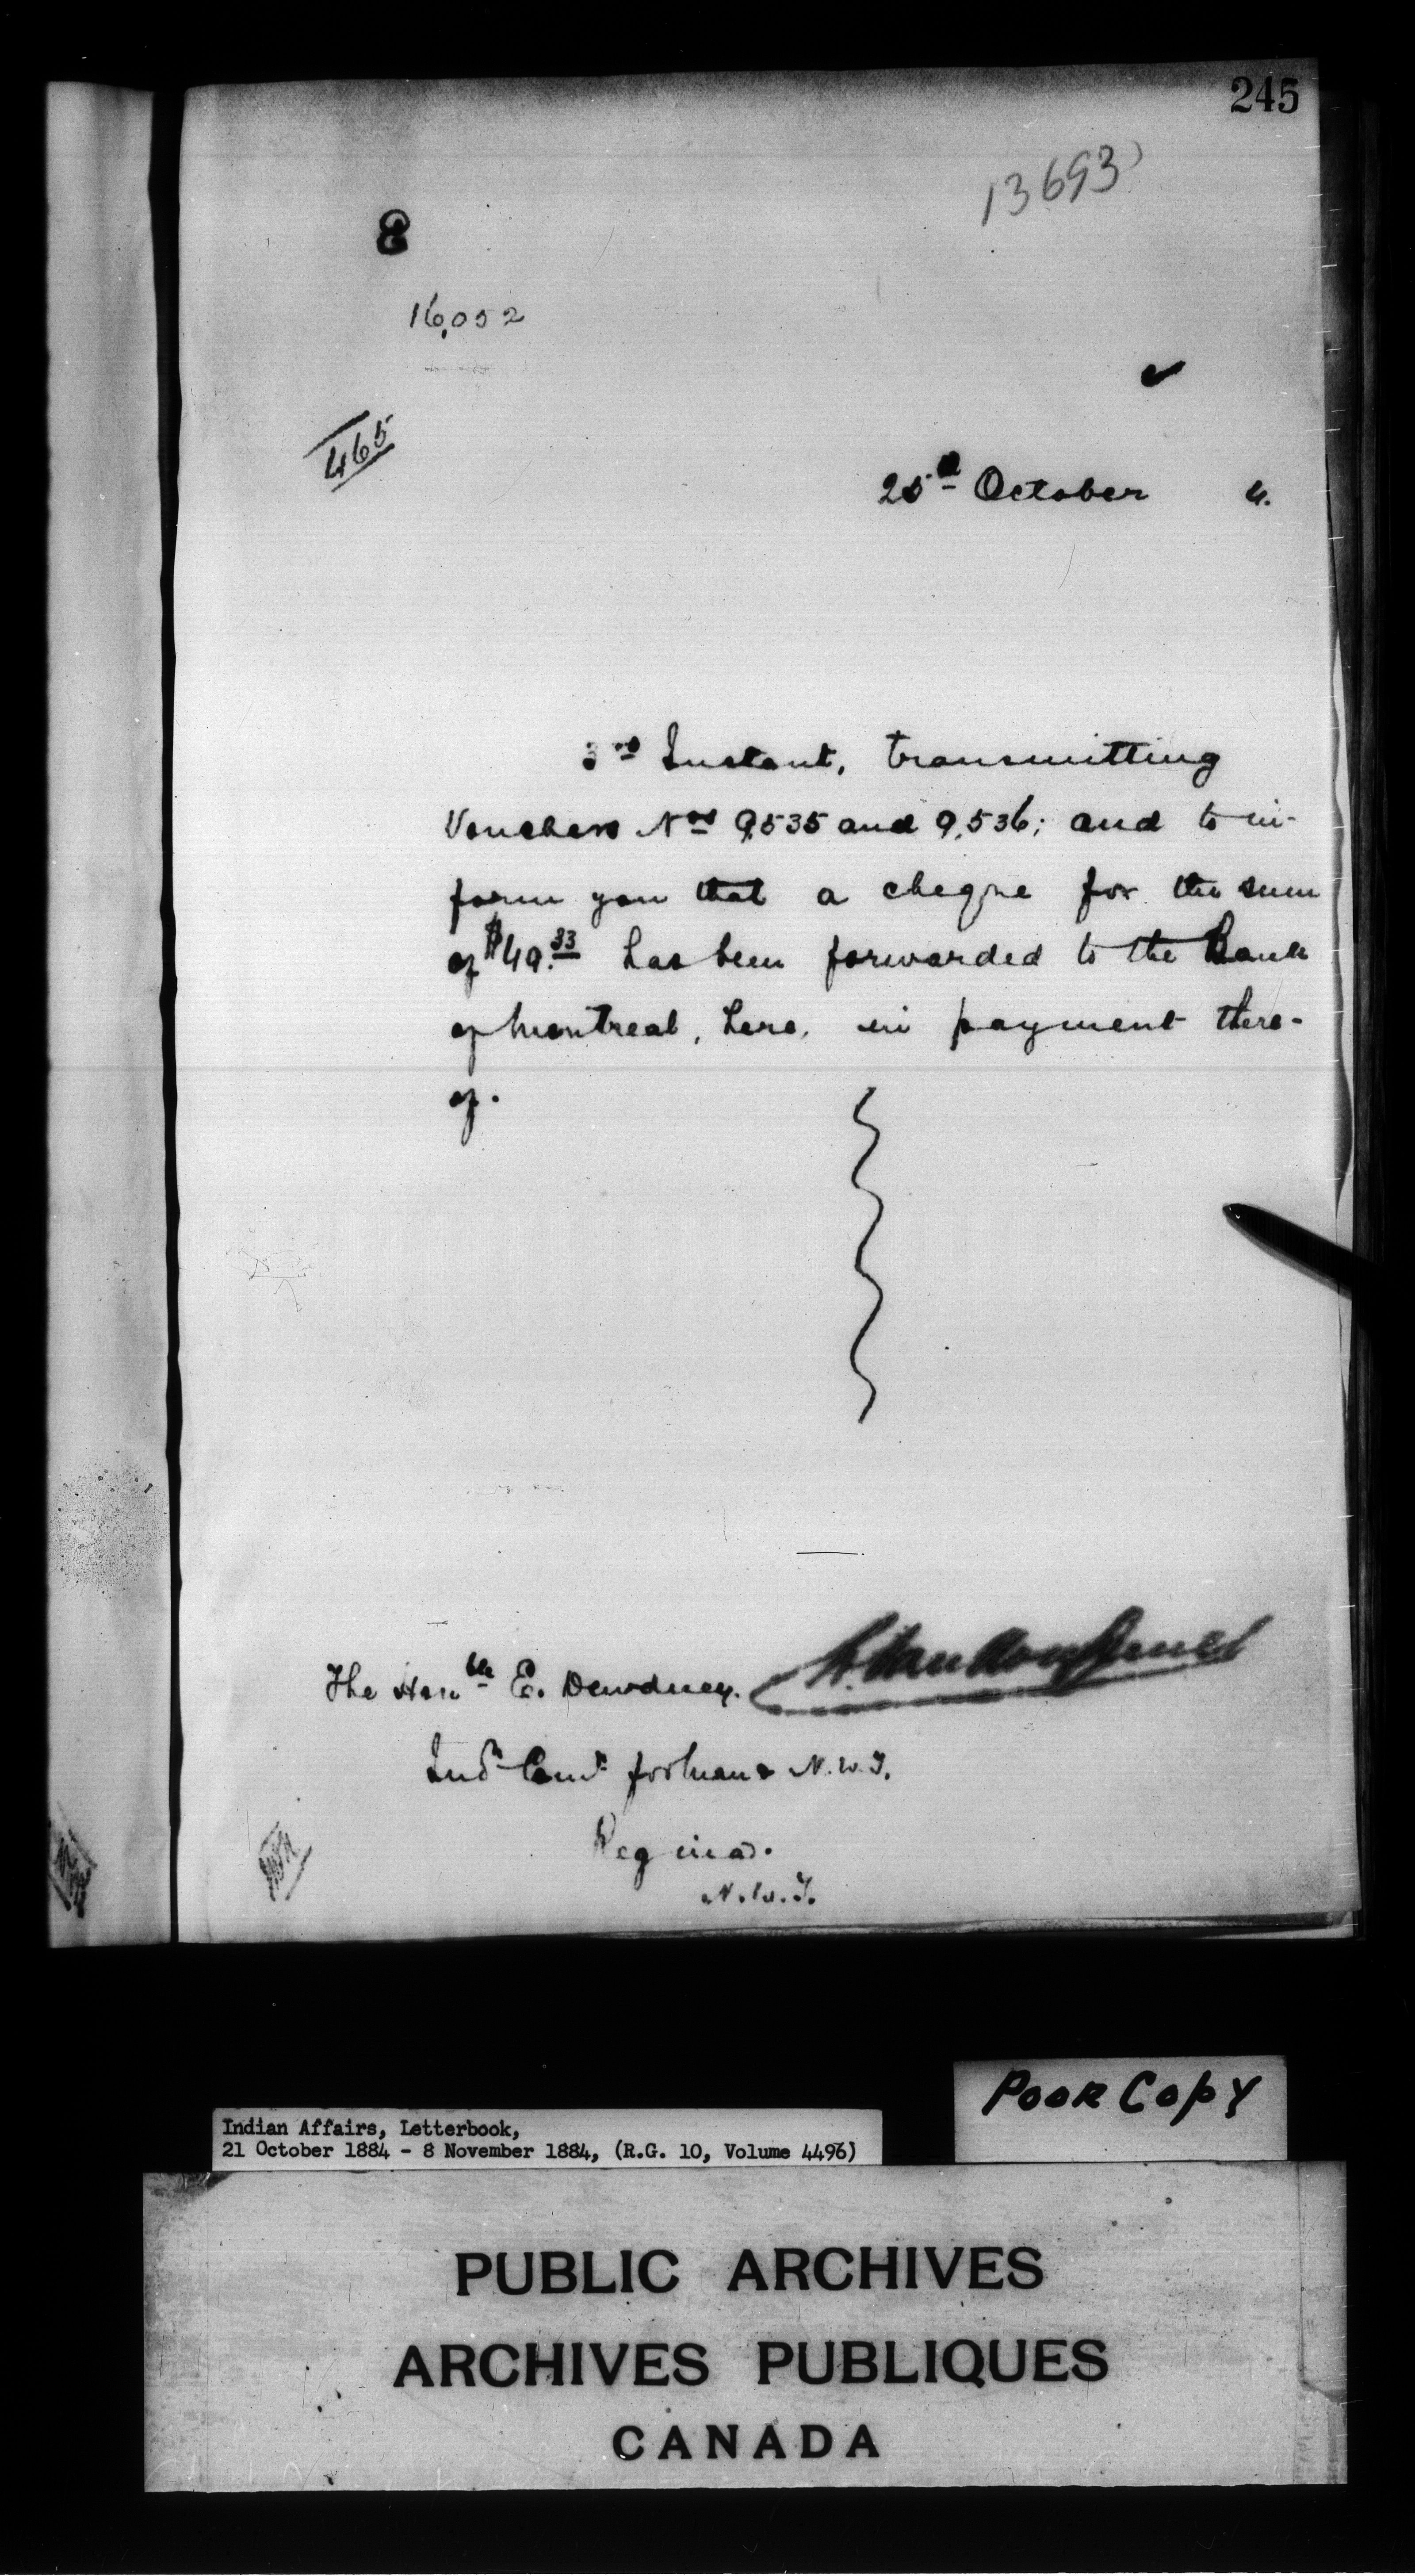 245
13693
E
16,052
465
25th October 4.
3rd Instant, transmitting
Vouchers Nos 9,535 and 9,536; and to in-
form you that a cheque for the sum
of $49.33 has been forwarded to the Bank
of Montreal, here, in payment there-
of.
The Honble E. Dewdney.
Indn Comr for Man & N.W.T.
Regina.
N.W.T.
Poor Copy
Indian Affairs, Letterbook,
21 October 1884 - 8 November 1884, (R.G. 10, Volume 4496)
PUBLIC ARCHIVES
ARCHIVES PUBLIQUES
CANADA